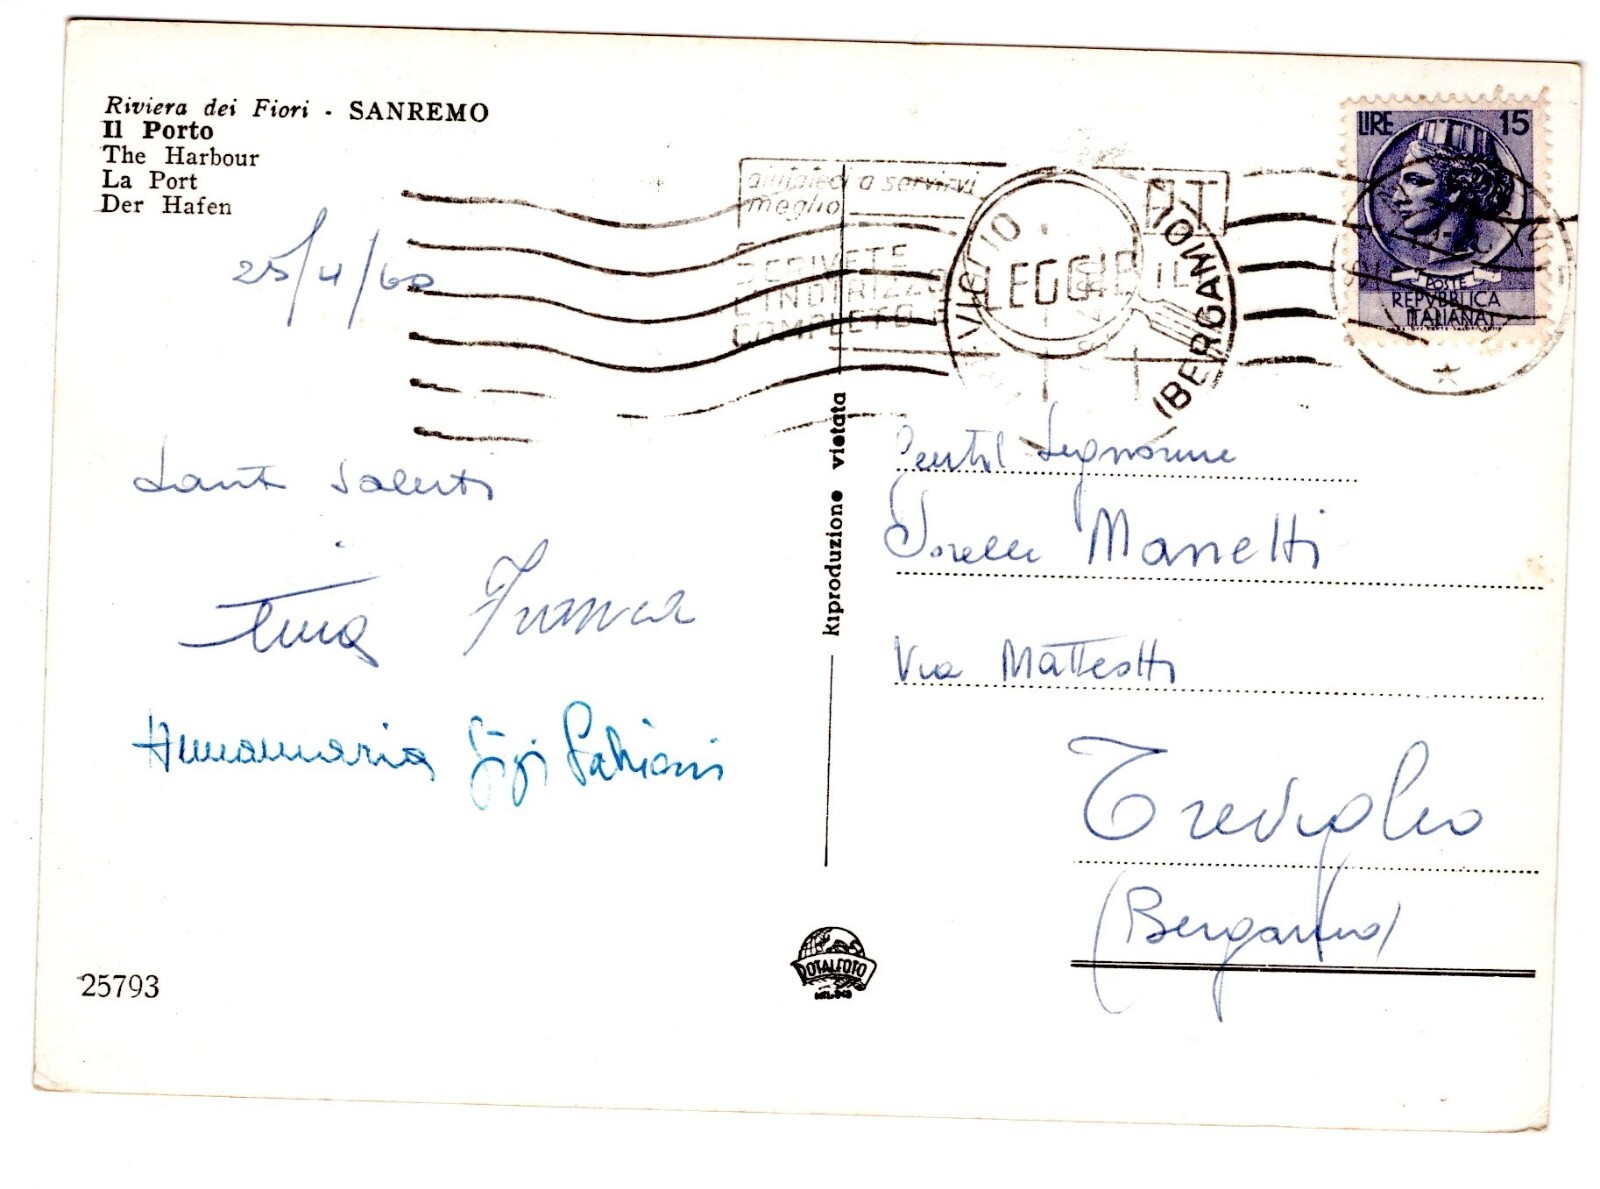 Riviera dei Fiori - SANREMO
Il Porto
The Harbour
La Port
Der Hafen
25/4/60
Tanti saluti
Tina Franca
Annamaria Gigi Fabiani
25793
Riproduzione vietata
ROTALFOTO
MILANO
aiutateci a servirvi
meglio
SCRIVETE
L'INDIRIZZO
COMPLETO
LEGGIBILE
(BERGAMO)
LIRE 15
POSTE
REPVBBLICA
ITALIANA
Gentil Signorine
Sorelle Manetti
Via Matteotti
Treviglio
(Bergamo)